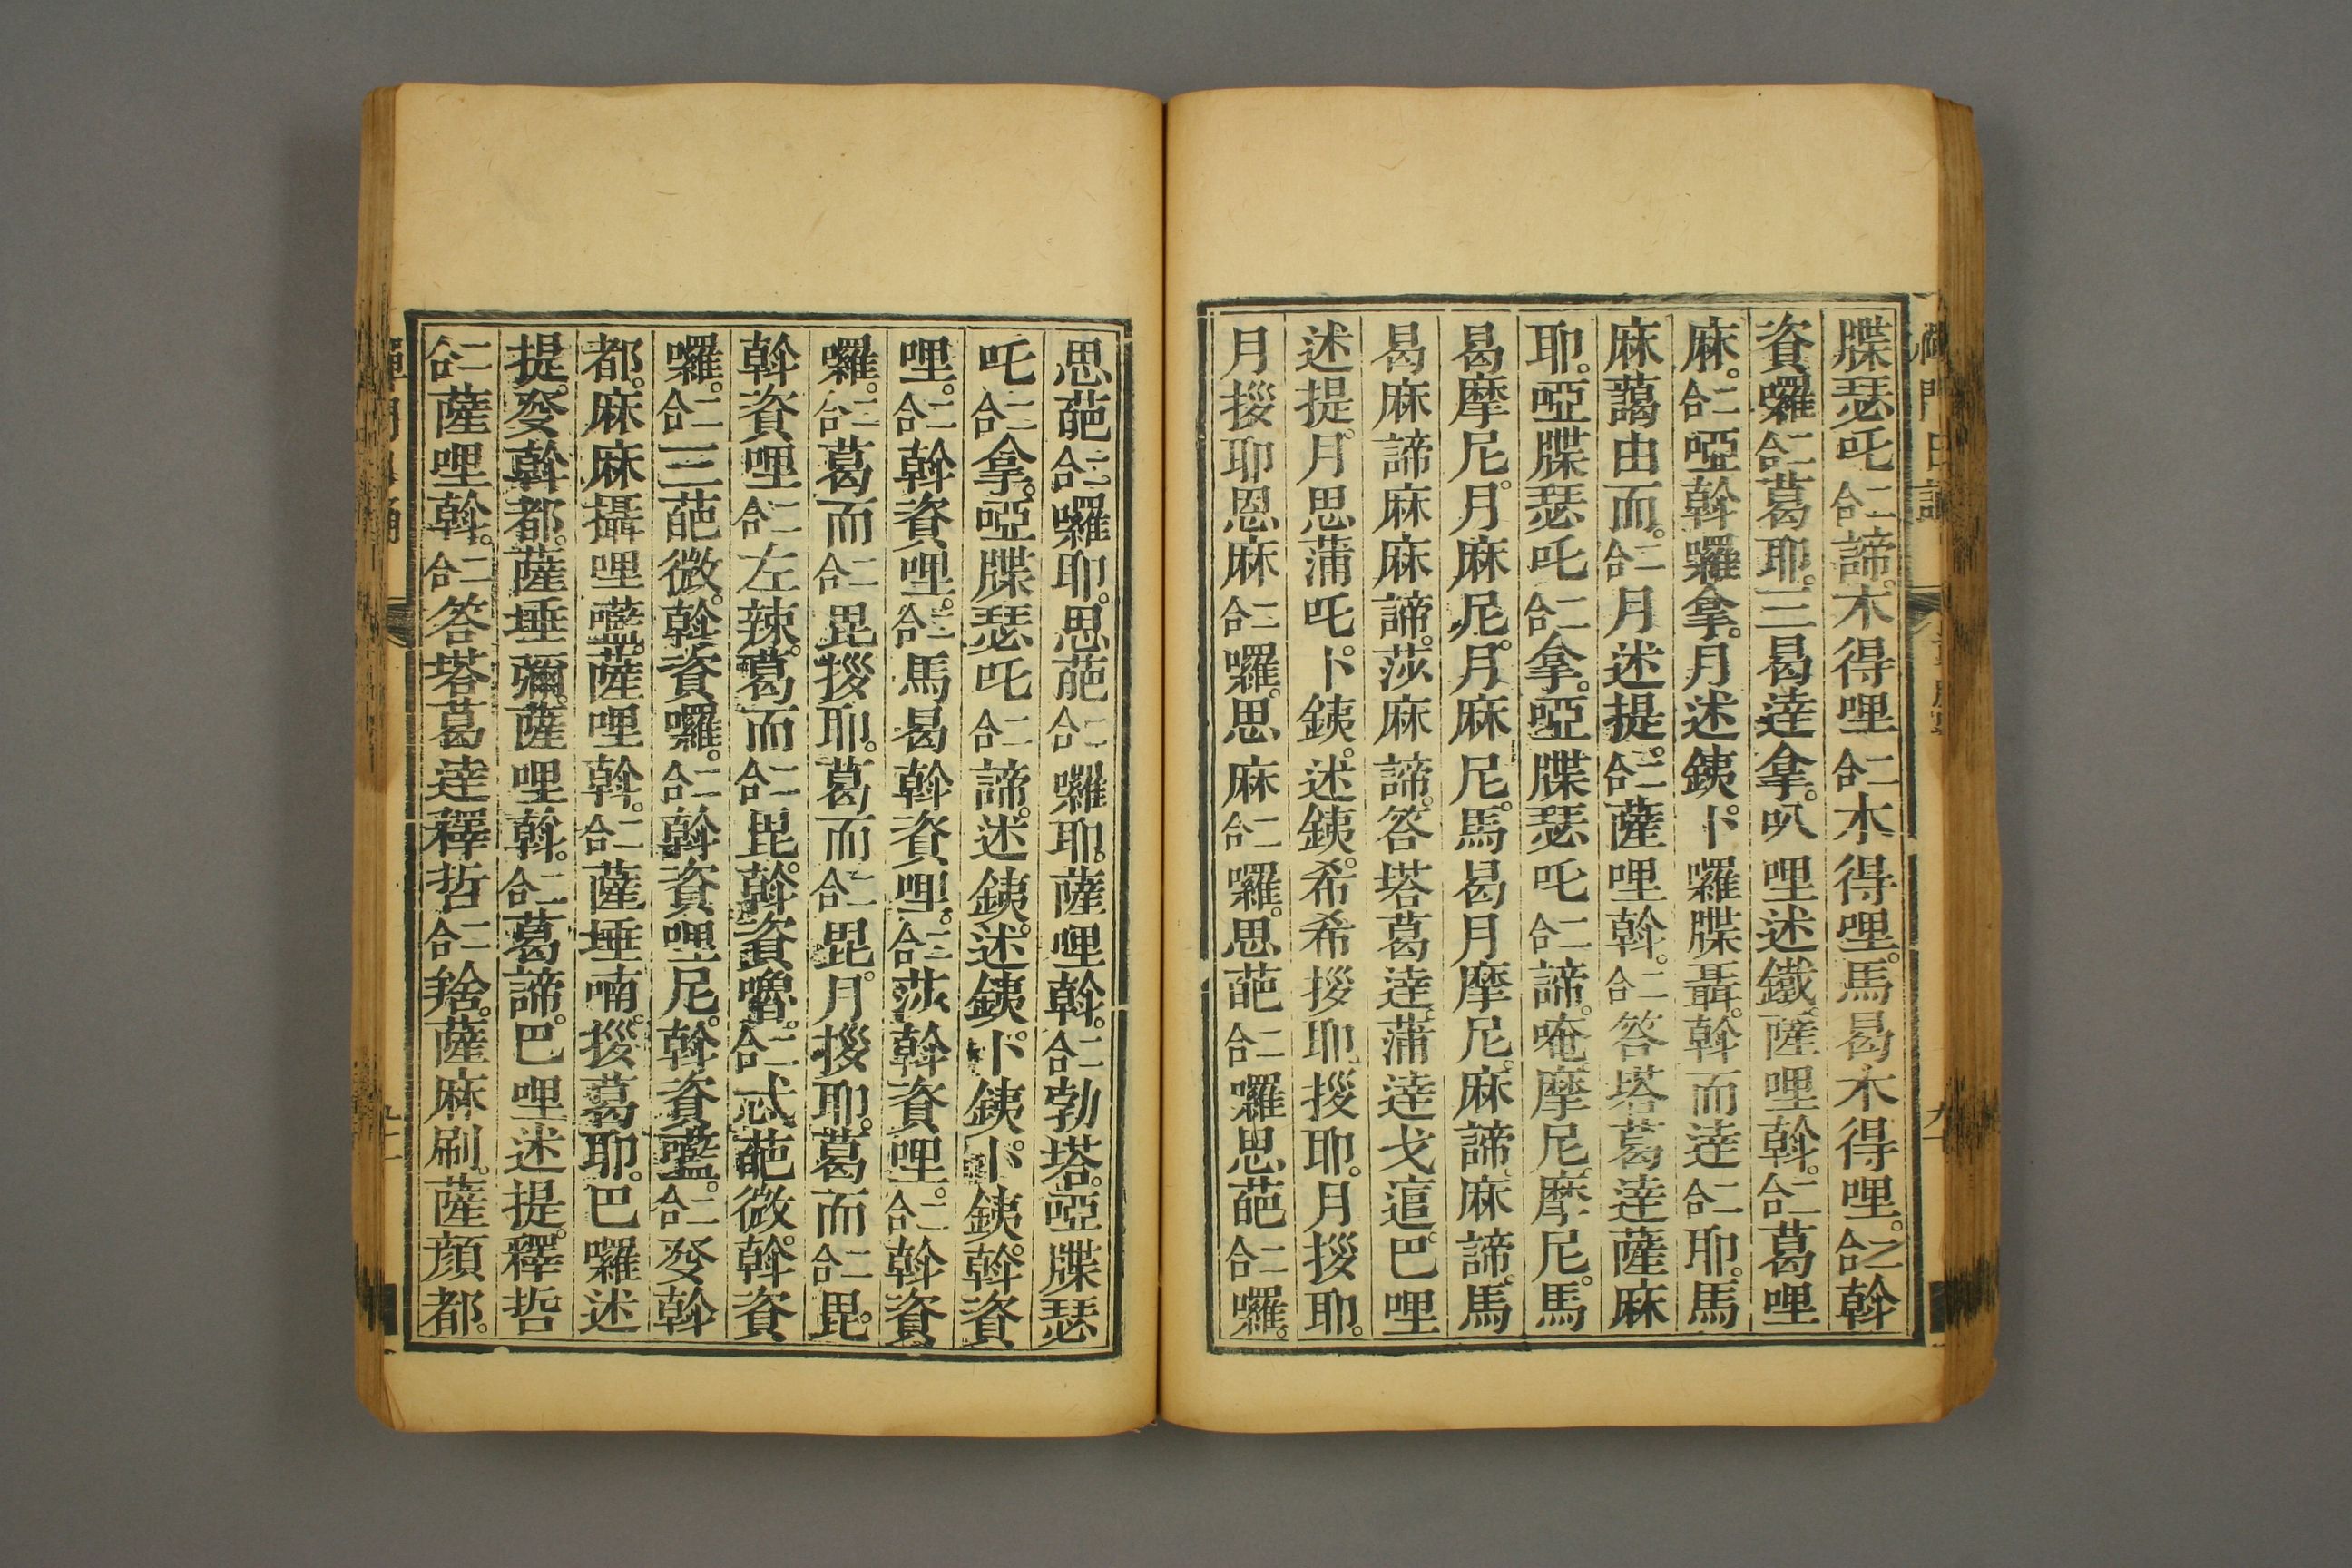 牒瑟吒合二諦。木得哩合二木得哩。馬曷木得哩。合二斡
資囉合二葛耶。三曷達拿。叭哩述鐵。薩哩斡。合二葛哩
麻。合二啞斡囉拿。月述銕。卜囉牒聶。斡而達合二耶。馬
麻藹由而。合二月述提。合二薩哩斡。合二答塔葛達薩麻
耶。啞牒瑟吒合二拿。啞牒瑟吒合二諦。唵摩尼。摩尼。馬
曷摩尼。月麻尼。月麻尼。馬曷月摩尼。麻諦。麻諦。馬
曷麻諦麻麻諦。莎麻諦。答塔葛達。蒲達戈𨓍。巴哩
述提。月思蒲吒。卜銕。述銕。希希拶耶。拶耶。月拶耶。
月拶耶恩麻合二囉。思麻合二囉。思葩合二囉思葩合二囉。
思葩合二囉耶。思葩合二囉耶。薩哩斡。合二勃塔。啞牒瑟
吒合二拿。啞牒瑟吒合二諦。述銕。述銕。卜銕。卜銕。斡資
哩。合二斡資哩。合二馬曷斡資哩。合二莎斡資哩。合二斡資
囉。合二葛而合二毘拶耶。葛而合二毘。月拶耶。葛而合二毘。
斡資哩合二左辣。葛而合二毘。斡資嚕。合二忒葩微。斡資
囉。合二三葩微。斡資囉。合二斡資哩尼。斡資㘕。合二癹斡
都。麻麻攝哩㘕。薩哩斡。合二薩埵喃。拶葛耶。巴囉述
提。癹斡都。薩埵彌。薩哩斡。合二葛諦。巴哩述提。釋哲
合二薩哩斡。合二答塔葛達釋哲合二捨。薩麻刷。薩顏都。